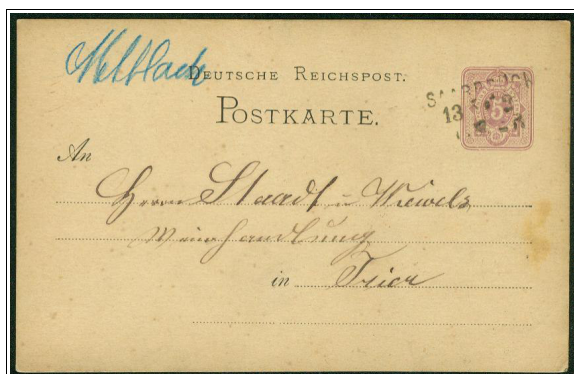 Mettlach
DEUTSCHE REICHSPOST.
POSTKARTE.
SAARBRÜCK
13
5
An
Herrn Staadt u Wiewels
Weinhandlung
in Trier